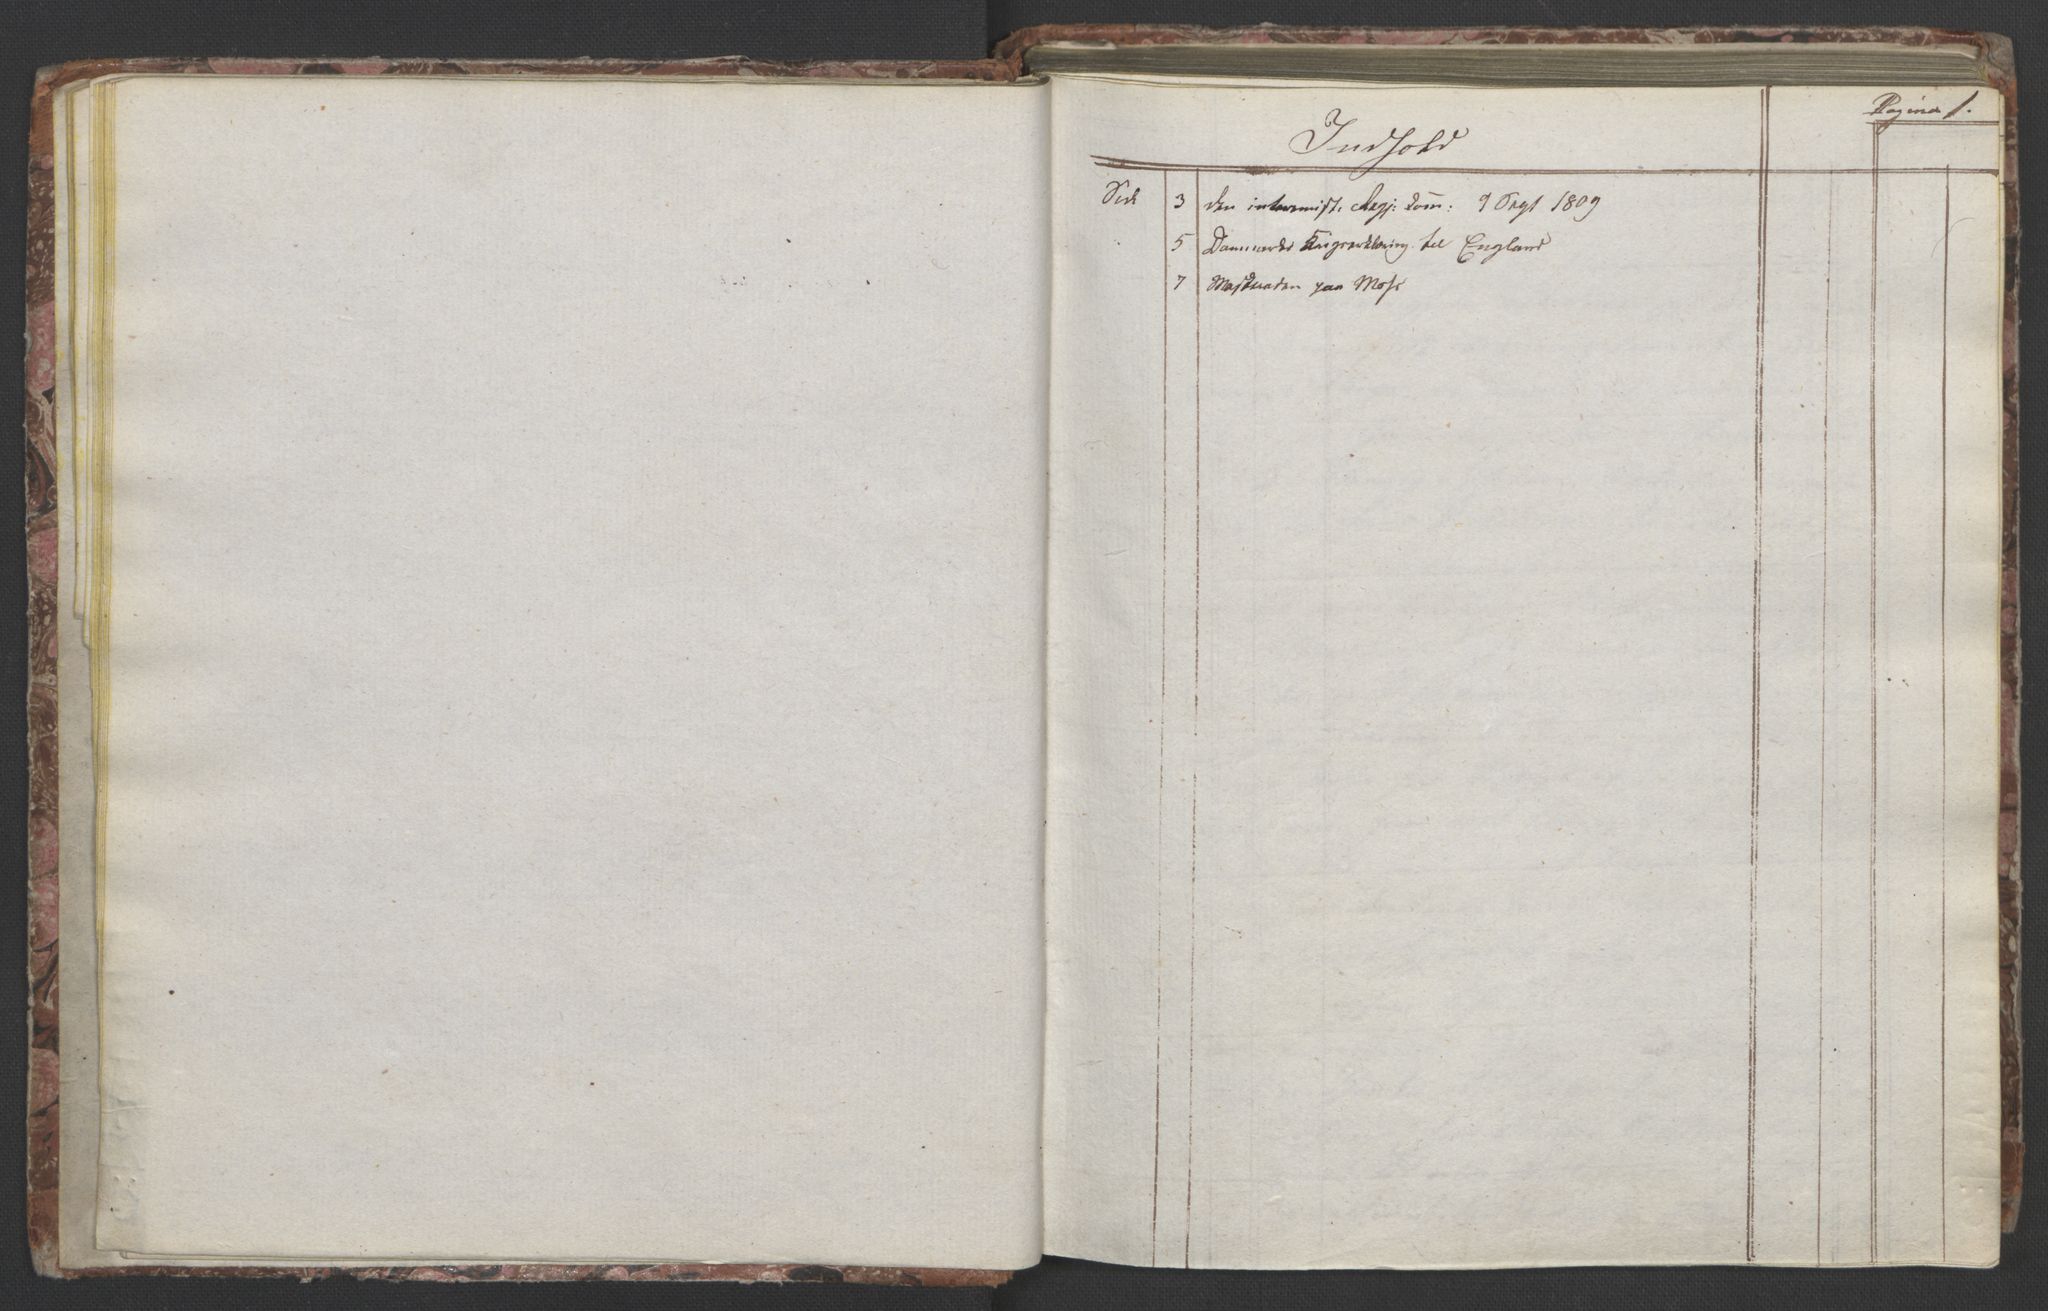 Pagina 1.
Indhold
Side 3 den interimist. Regj: Com: 9 Sept 1809
5 Danmarks Krigserklæring til England
7 paa Moss